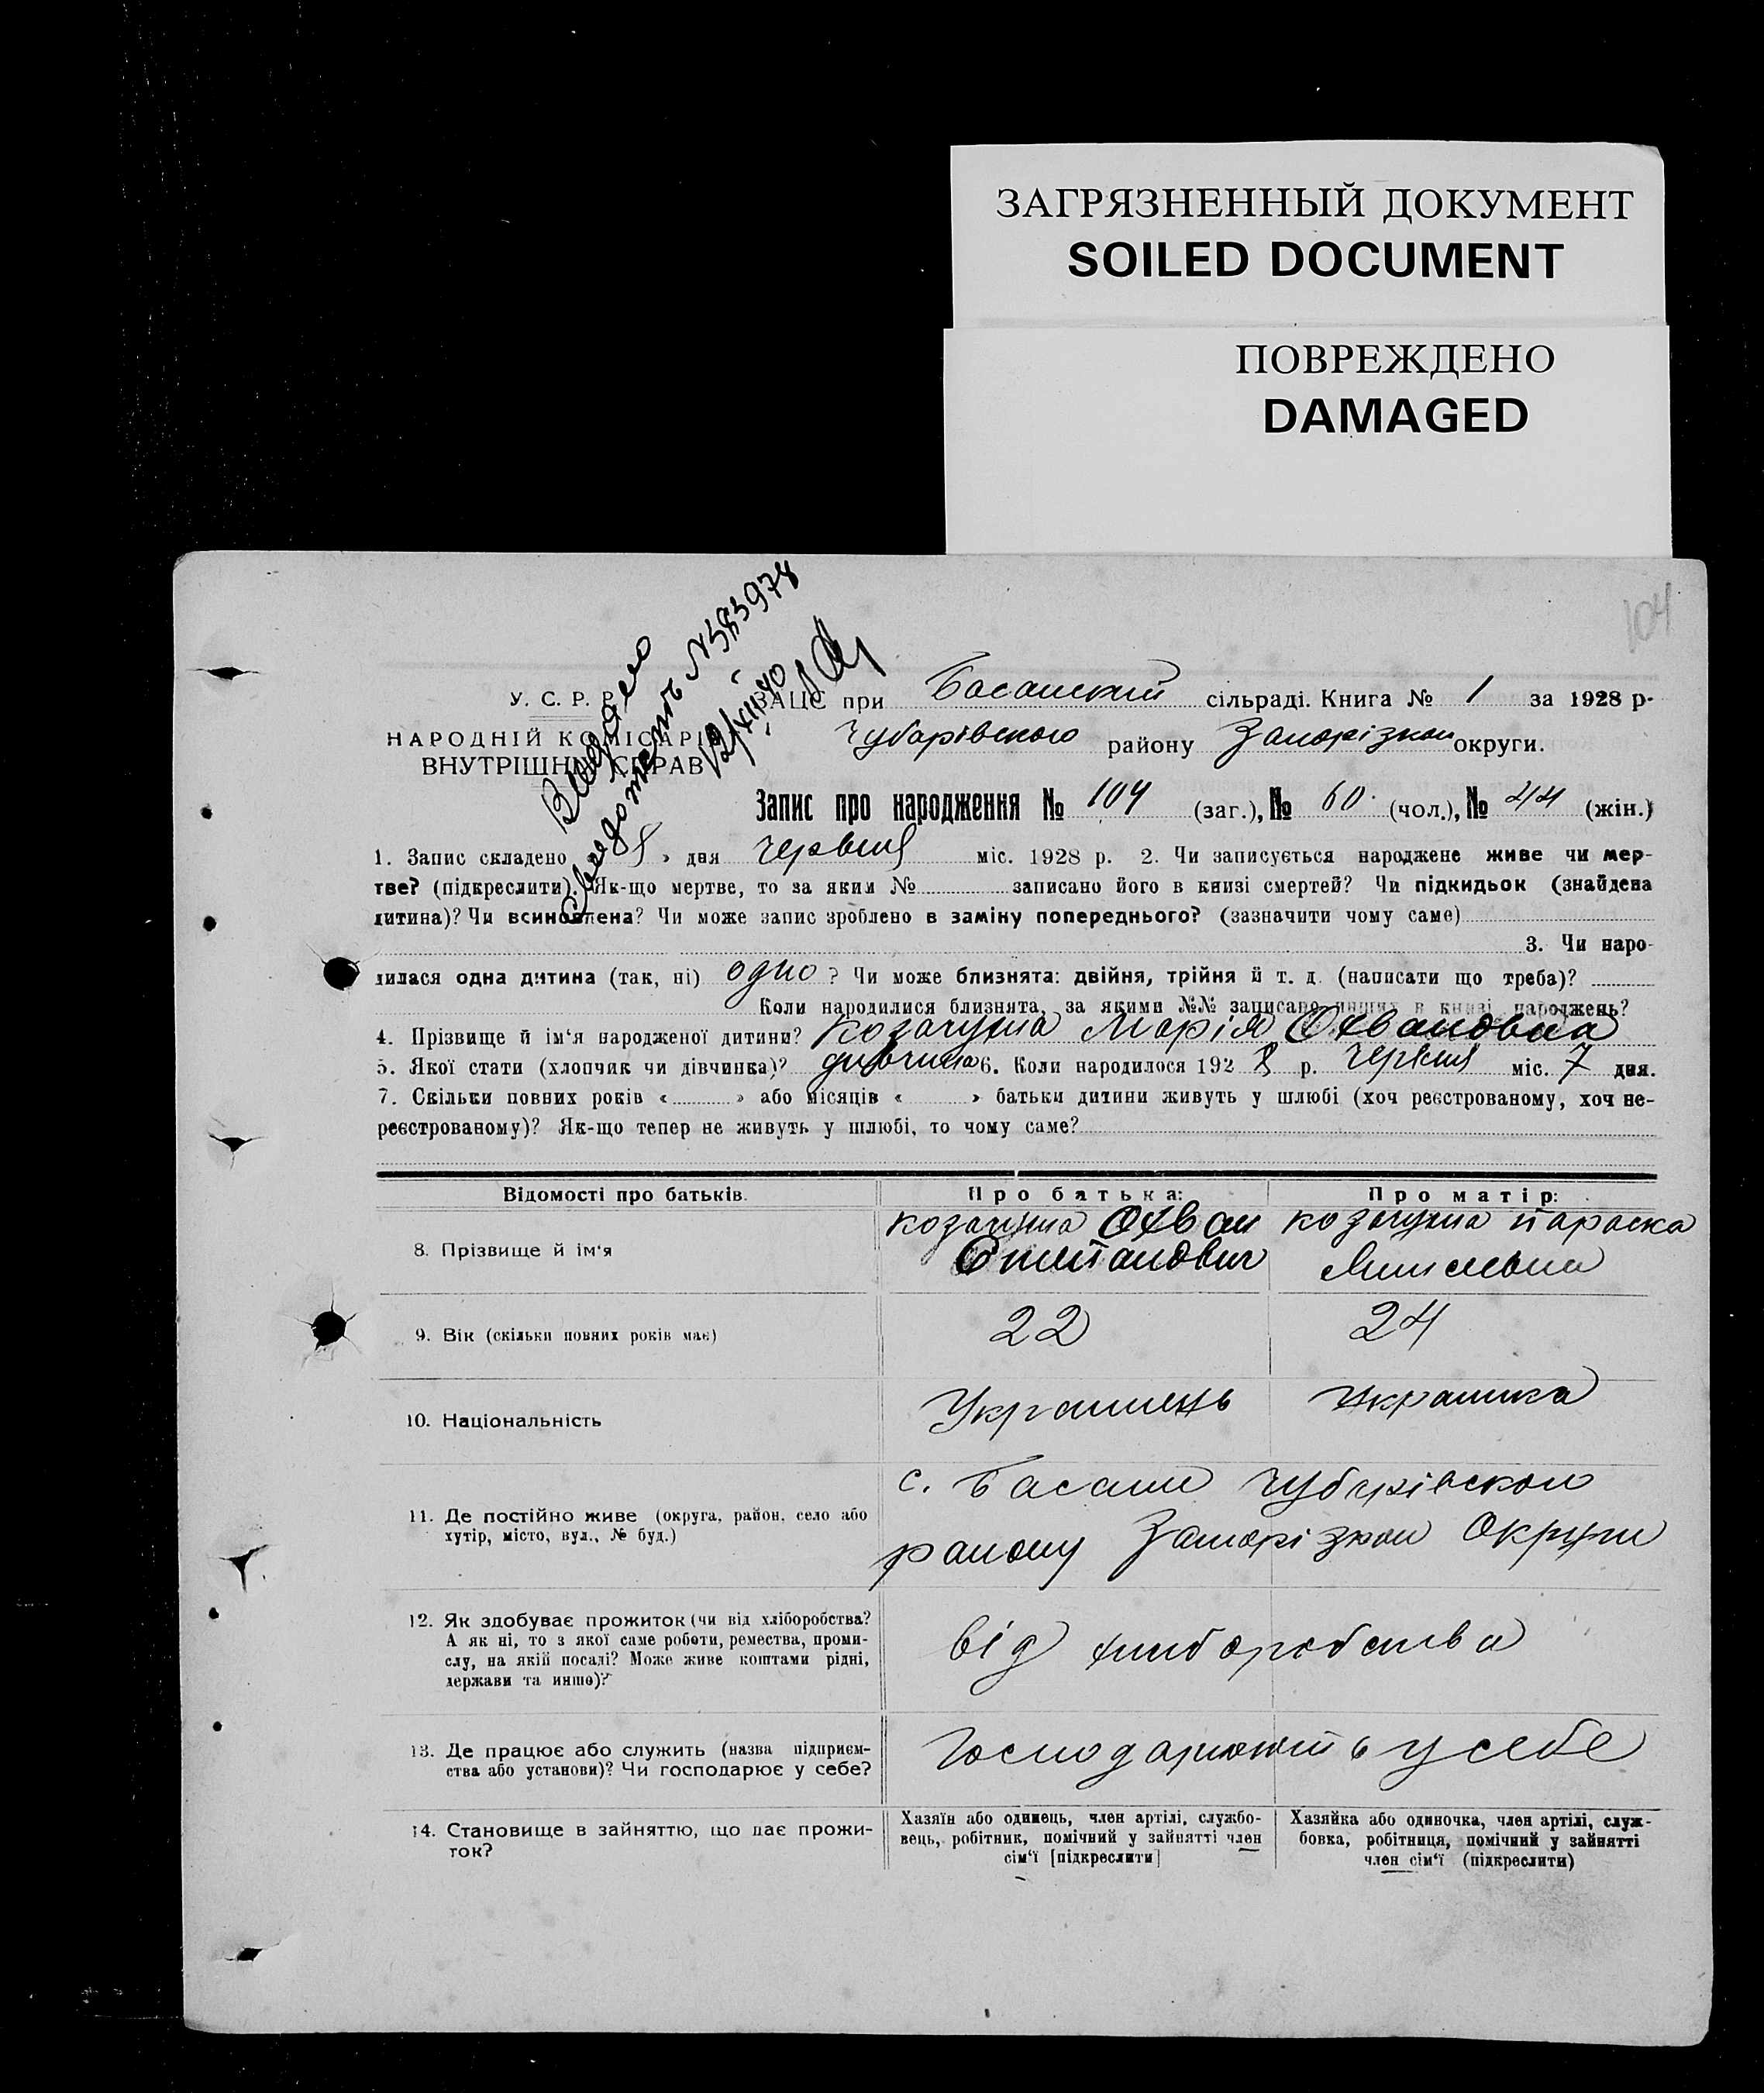 ЗАГРЯЗНЕННЫЙ ДОКУМЕНТ
SOILED DOCUMENT
ПОВРЕЖДЕНО
DAMAGED
104
Видано
N 383978
У. С. Р. Р.
НАРОДНІЙ КОМІСАРІЯТ
ВНУТРІШНІХ СПРАВ
ЗАЦС при Басанский сільраді. Книга № 1 за 1928 р.
Чубарівского району Запорізкои округи.
Запис про народження № 104 (заг.), № 60 (чол.), № 44 (жін.)
1. Запис складено « 8 » дня червня міс. 1928 р. 2. Чи записується народжене живе чи мер-
тве? (підкреслити). Як-що мертве, то за яким № записано його в книзі смертей? Чи підкидьок (знайдена
дитина)? Чи всиновлена? Чи може запис зроблено в заміну попереднього? (зазначити чому саме)
3. Чи наро-
дилася одна дитина (так, ні) одно ? Чи може близнята: двійня, трійня й т. д. (написати що треба)?
Коли народилися близнята, за якими №№ записано инших в книзі народжень?
4. Прізвище й ім'я народженої дитини? Козачуна Марія
5. Якої стати (хлопчик чи дівчинка)? дивчина 6. Коли народилося 1928 р. червня міс. 7 дня.
7. Скільки повних років « » або місяців « » батьки дитини живуть у шлюбі (хоч реєстрованому, хоч не-
реєстрованому)? Як-що тепер не живуть у шлюбі, то чому саме?
Відомості про батьків. Про батька: Про матір:
8. Прізвище й ім'я
козачуна
Степанович
козачуна параска
9. Вік (скільки повних років має) 22 24
10. Національність Украинець Украинка
11. Де постійно живе (округа, район, село або
хутір, місто, вул., № буд.)
с. Басани Чубарівскои
району Запорізкои Округи
12. Як здобуває прожиток (чи від хліборобства?
А як ні, то з якої саме роботи, ремества, проми-
слу, на якій посаді? Може живе коштами рідні,
держави та инше)?
від хлиборобства
13. Де працює або служить (назва підприєм-
ства або установи)? Чи господарює у себе?
Господарюють у себе
14. Становище в зайняттю, що дає прожи-
ток?
Хазяїн або одинець, член артілі, службо-
вець, робітник, помічний у зайнятті член
сім'ї [підкреслити]
Хазяйка або одиночка, член артілі, служ-
бовка, робітниця, помічний у зайнятті
член сім'ї (підкреслити)